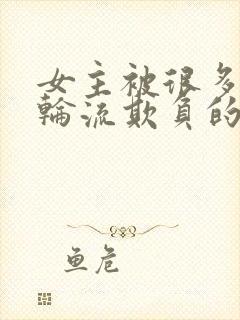 女主被很多
輪流欺負的
鱼危